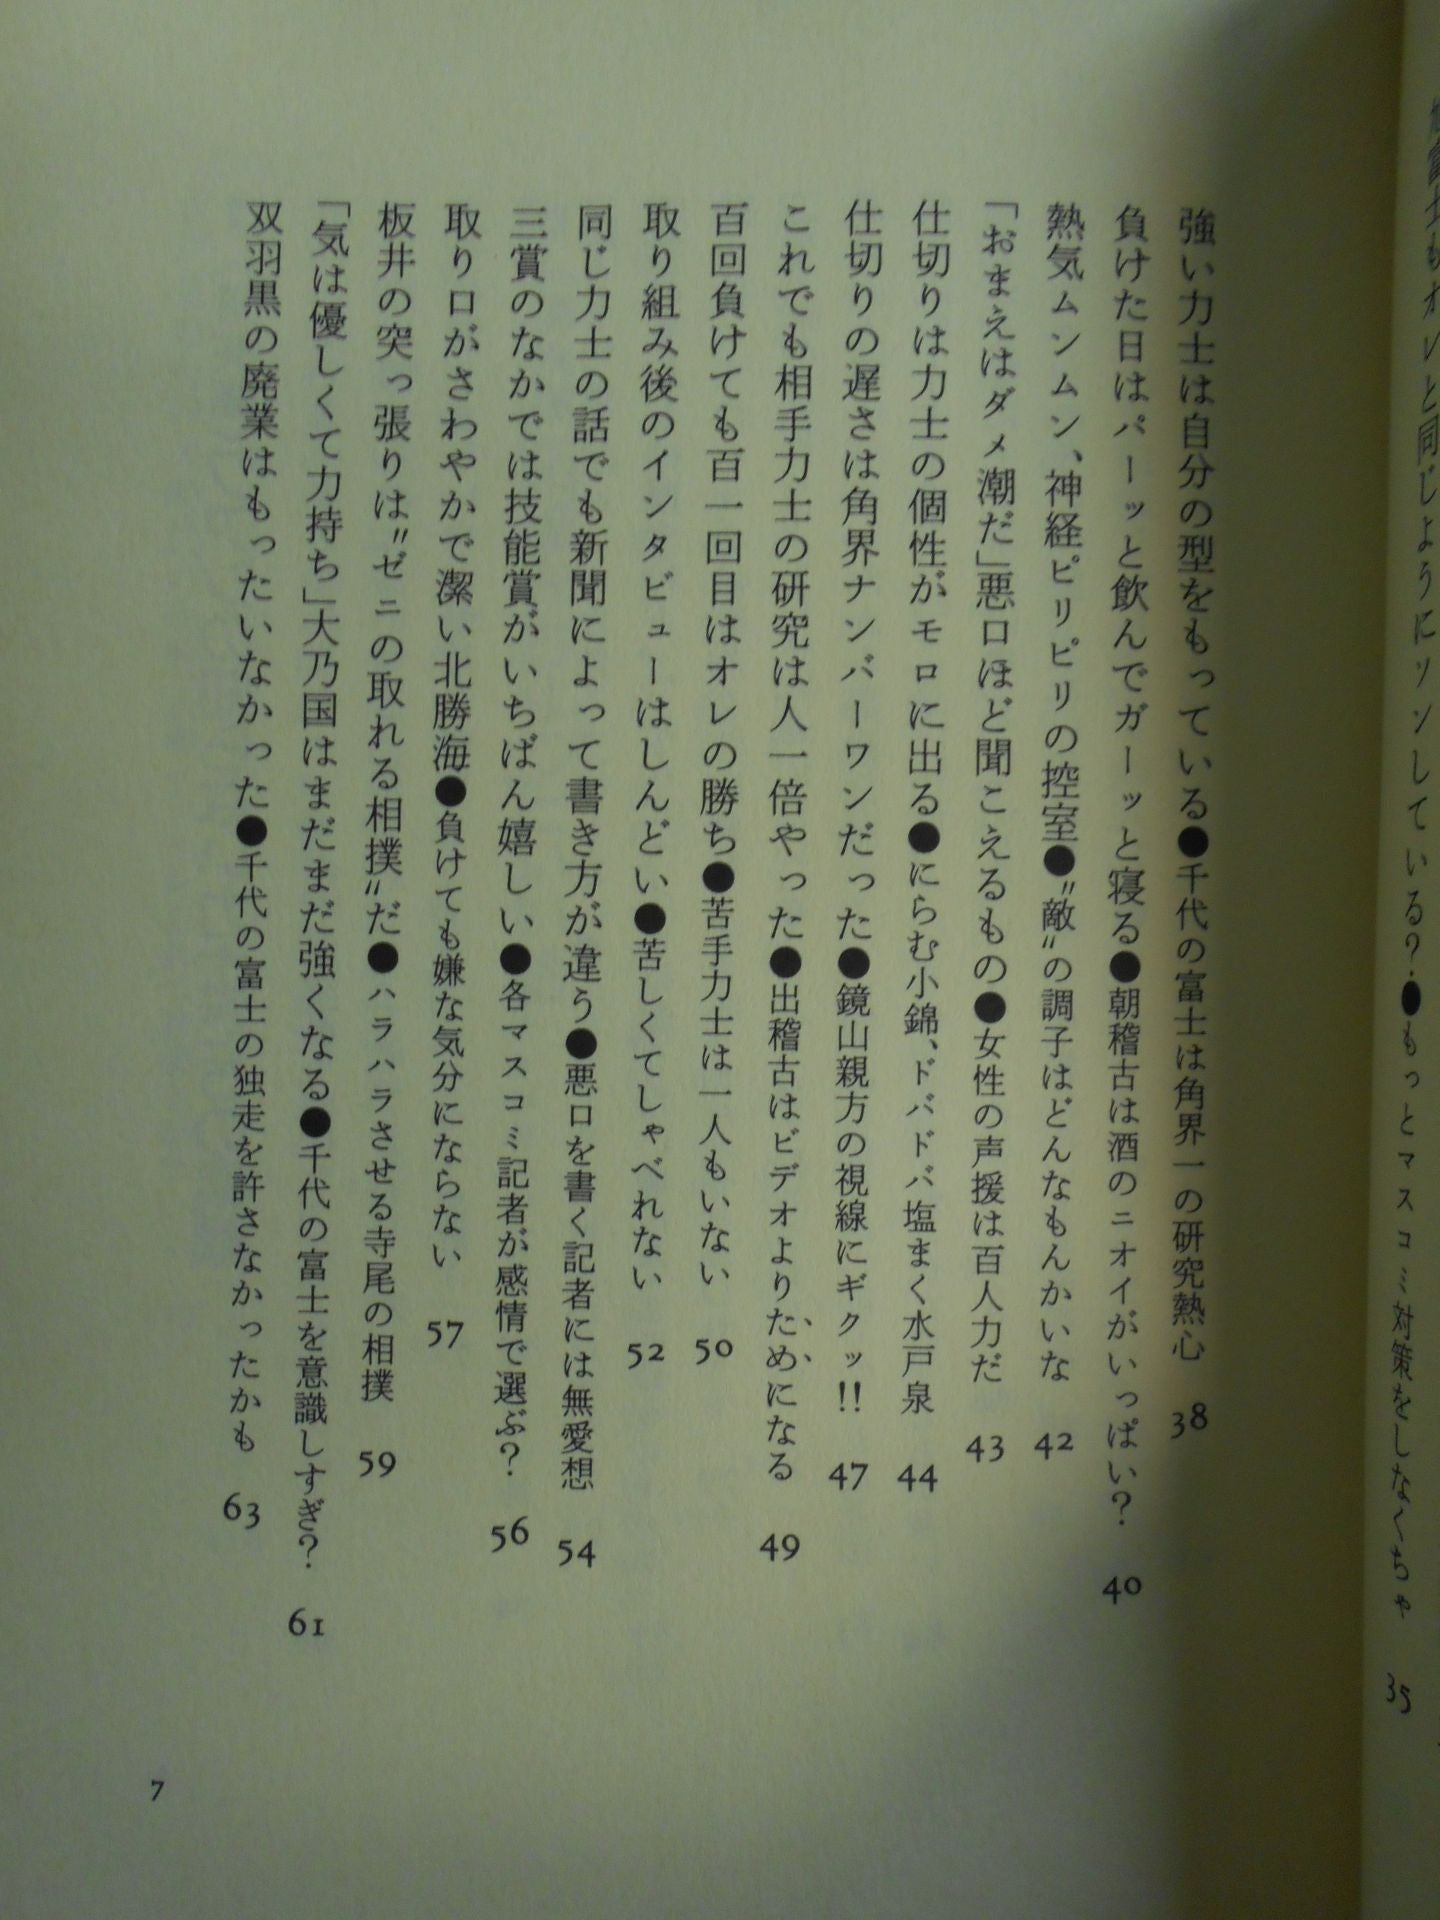 もオレと同じようにソンしている?●もっとマスコミ対策をしなくちゃ 35
強い力士は自分の型をもっている●千代の富士は角界一の研究熱心 38
負けた日はパーッと飲んでガーッと寝る●朝稽古は酒のニオイがいっぱい? 40
熱気ムンムン、神経ピリピリの控室●〝敵〟の調子はどんなもんかいな 42
「おまえはダメ潮だ」悪口ほど聞こえるもの●女性の声援は百人力だ 43
仕切りは力士の個性がモロに出る●にらむ小錦、ドバドバ塩まく水戸泉 44
仕切りの遅さは角界ナンバーワンだった●鏡山親方の視線にギクッ!! 47
これでも相手力士の研究は人一倍やった●出稽古はビデオよりためになる 49
百回負けても百一回目はオレの勝ち●苦手力士は一人もいない 50
取り組み後のインタビューはしんどい●苦しくてしゃべれない 52
同じ力士の話でも新聞によって書き方が違う●悪口を書く記者には無愛想 54
三賞のなかでは技能賞がいちばん嬉しい●各マスコミ記者が感情で選ぶ? 56
取り口がさわやかで潔い北勝海●負けても嫌な気分にならない 57
板井の突っ張りは〝ゼニの取れる相撲〟だ●ハラハラさせる寺尾の相撲 59
「気は優しくて力持ち」大乃国はまだまだ強くなる●千代の富士を意識しすぎ? 61
双羽黒の廃業はもったいなかった●千代の富士の独走を許さなかったかも 63
7